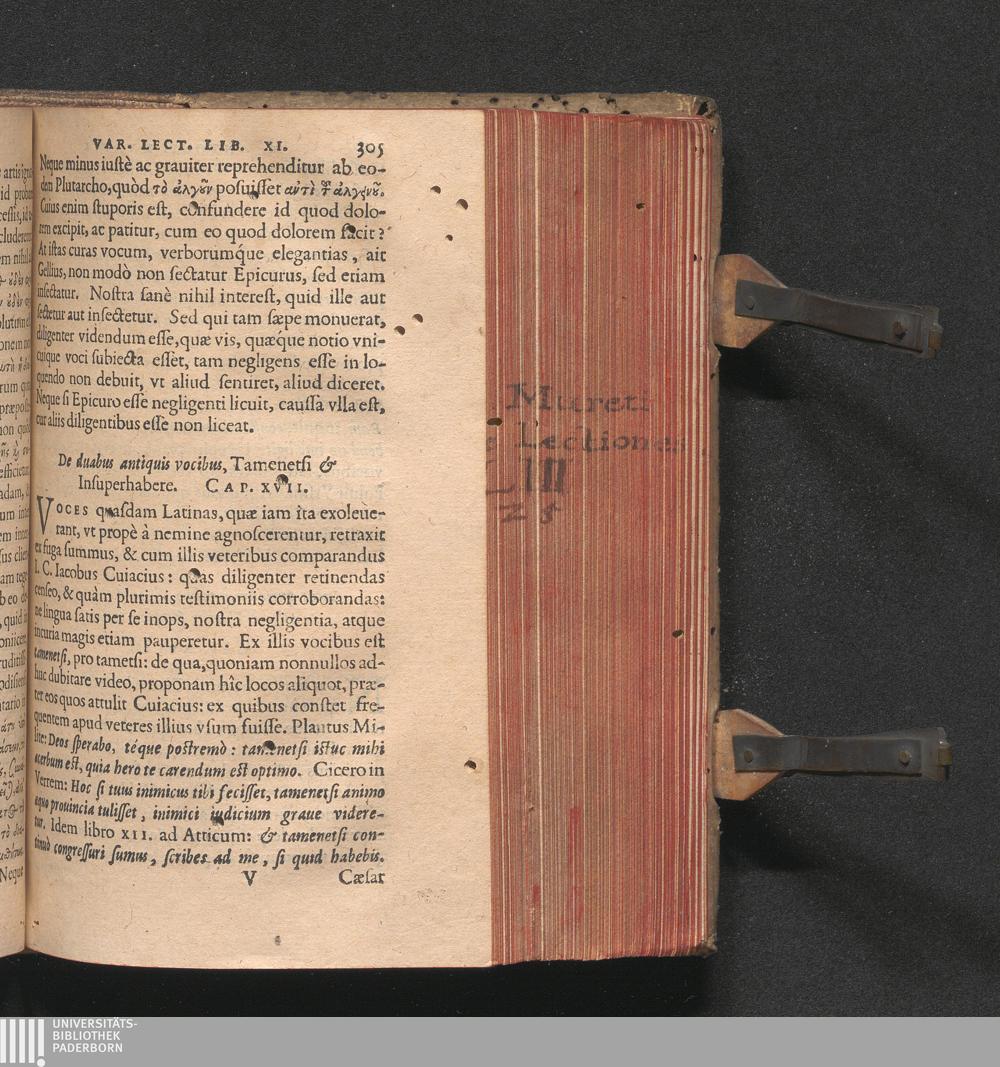 VAR. LECT. LIB. XI. 305
Neque minus iustè ac grauiter reprehenditur ab eo-
dem Plutarcho, quòd τὸ ἀλγοῦν posuisset ἀντὶ τοῦ ἀλγεινοῦ.
Cuius enim stuporis est, confundere id quod dolo-
rem excipit, ac patitur, cum eo quod dolorem facit?
At istas curas vocum, verborumq́ue elegantias, ait
Gellius, non modò non sectatur Epicurus, sed etiam
insectatur. Nostra sanè nihil interest, quid ille aut
sectetur aut insectetur. Sed qui tam sæpe monuerat,
diligenter videndum esse, quæ vis, quæque notio vni-
cuique voci subiecta esset, tam negligens esse in lo-
quendo non debuit, vt aliud sentiret, aliud diceret.
Neque si Epicuro esse negligenti licuit, caussa vlla est,
cur aliis diligentibus esse non liceat.
De duabus antiquis vocibus, Tamenetsi &
Insuperhabere. CAP. XVII.
VOCES quasdam Latinas, quæ iam ita exoleue-
rant, vt propè à nemine agnoscerentur, retraxit
ex fuga summus, & cum illis veteribus comparandus
I. C. Iacobus Cuiacius: quas diligenter retinendas
censeo, & quàm plurimis testimoniis corroborandas:
ne lingua satis per se inops, nostra negligentia, atque
incuria magis etiam pauperetur. Ex illis vocibus est
tamenetsi, pro tametsi: de qua, quoniam nonnullos ad-
huc dubitare video, proponam hîc locos aliquot, præ-
ter eos quos attulit Cuiacius: ex quibus constet fre-
quentem apud veteres illius vsum fuisse. Plautus Mi-
lite: Deos sperabo, téque postremò: tamenetsi istuc mihi
acerbum est, quia hero te carendum est optimo. Cicero in
Verrem: Hoc si tuus inimicus tibi fecisset, tamenetsi animo
æquo prouincia tulisset, inimici iudicium graue videre-
tur. Idem libro XII. ad Atticum: & tamenetsi con-
tinuò congressuri sumus, scribes ad me, si quid habebis.
V Cæsar
Mureti
Lectiones
L III
25
UNIVERSITÄTS-
BIBLIOTHEK
PADERBORN